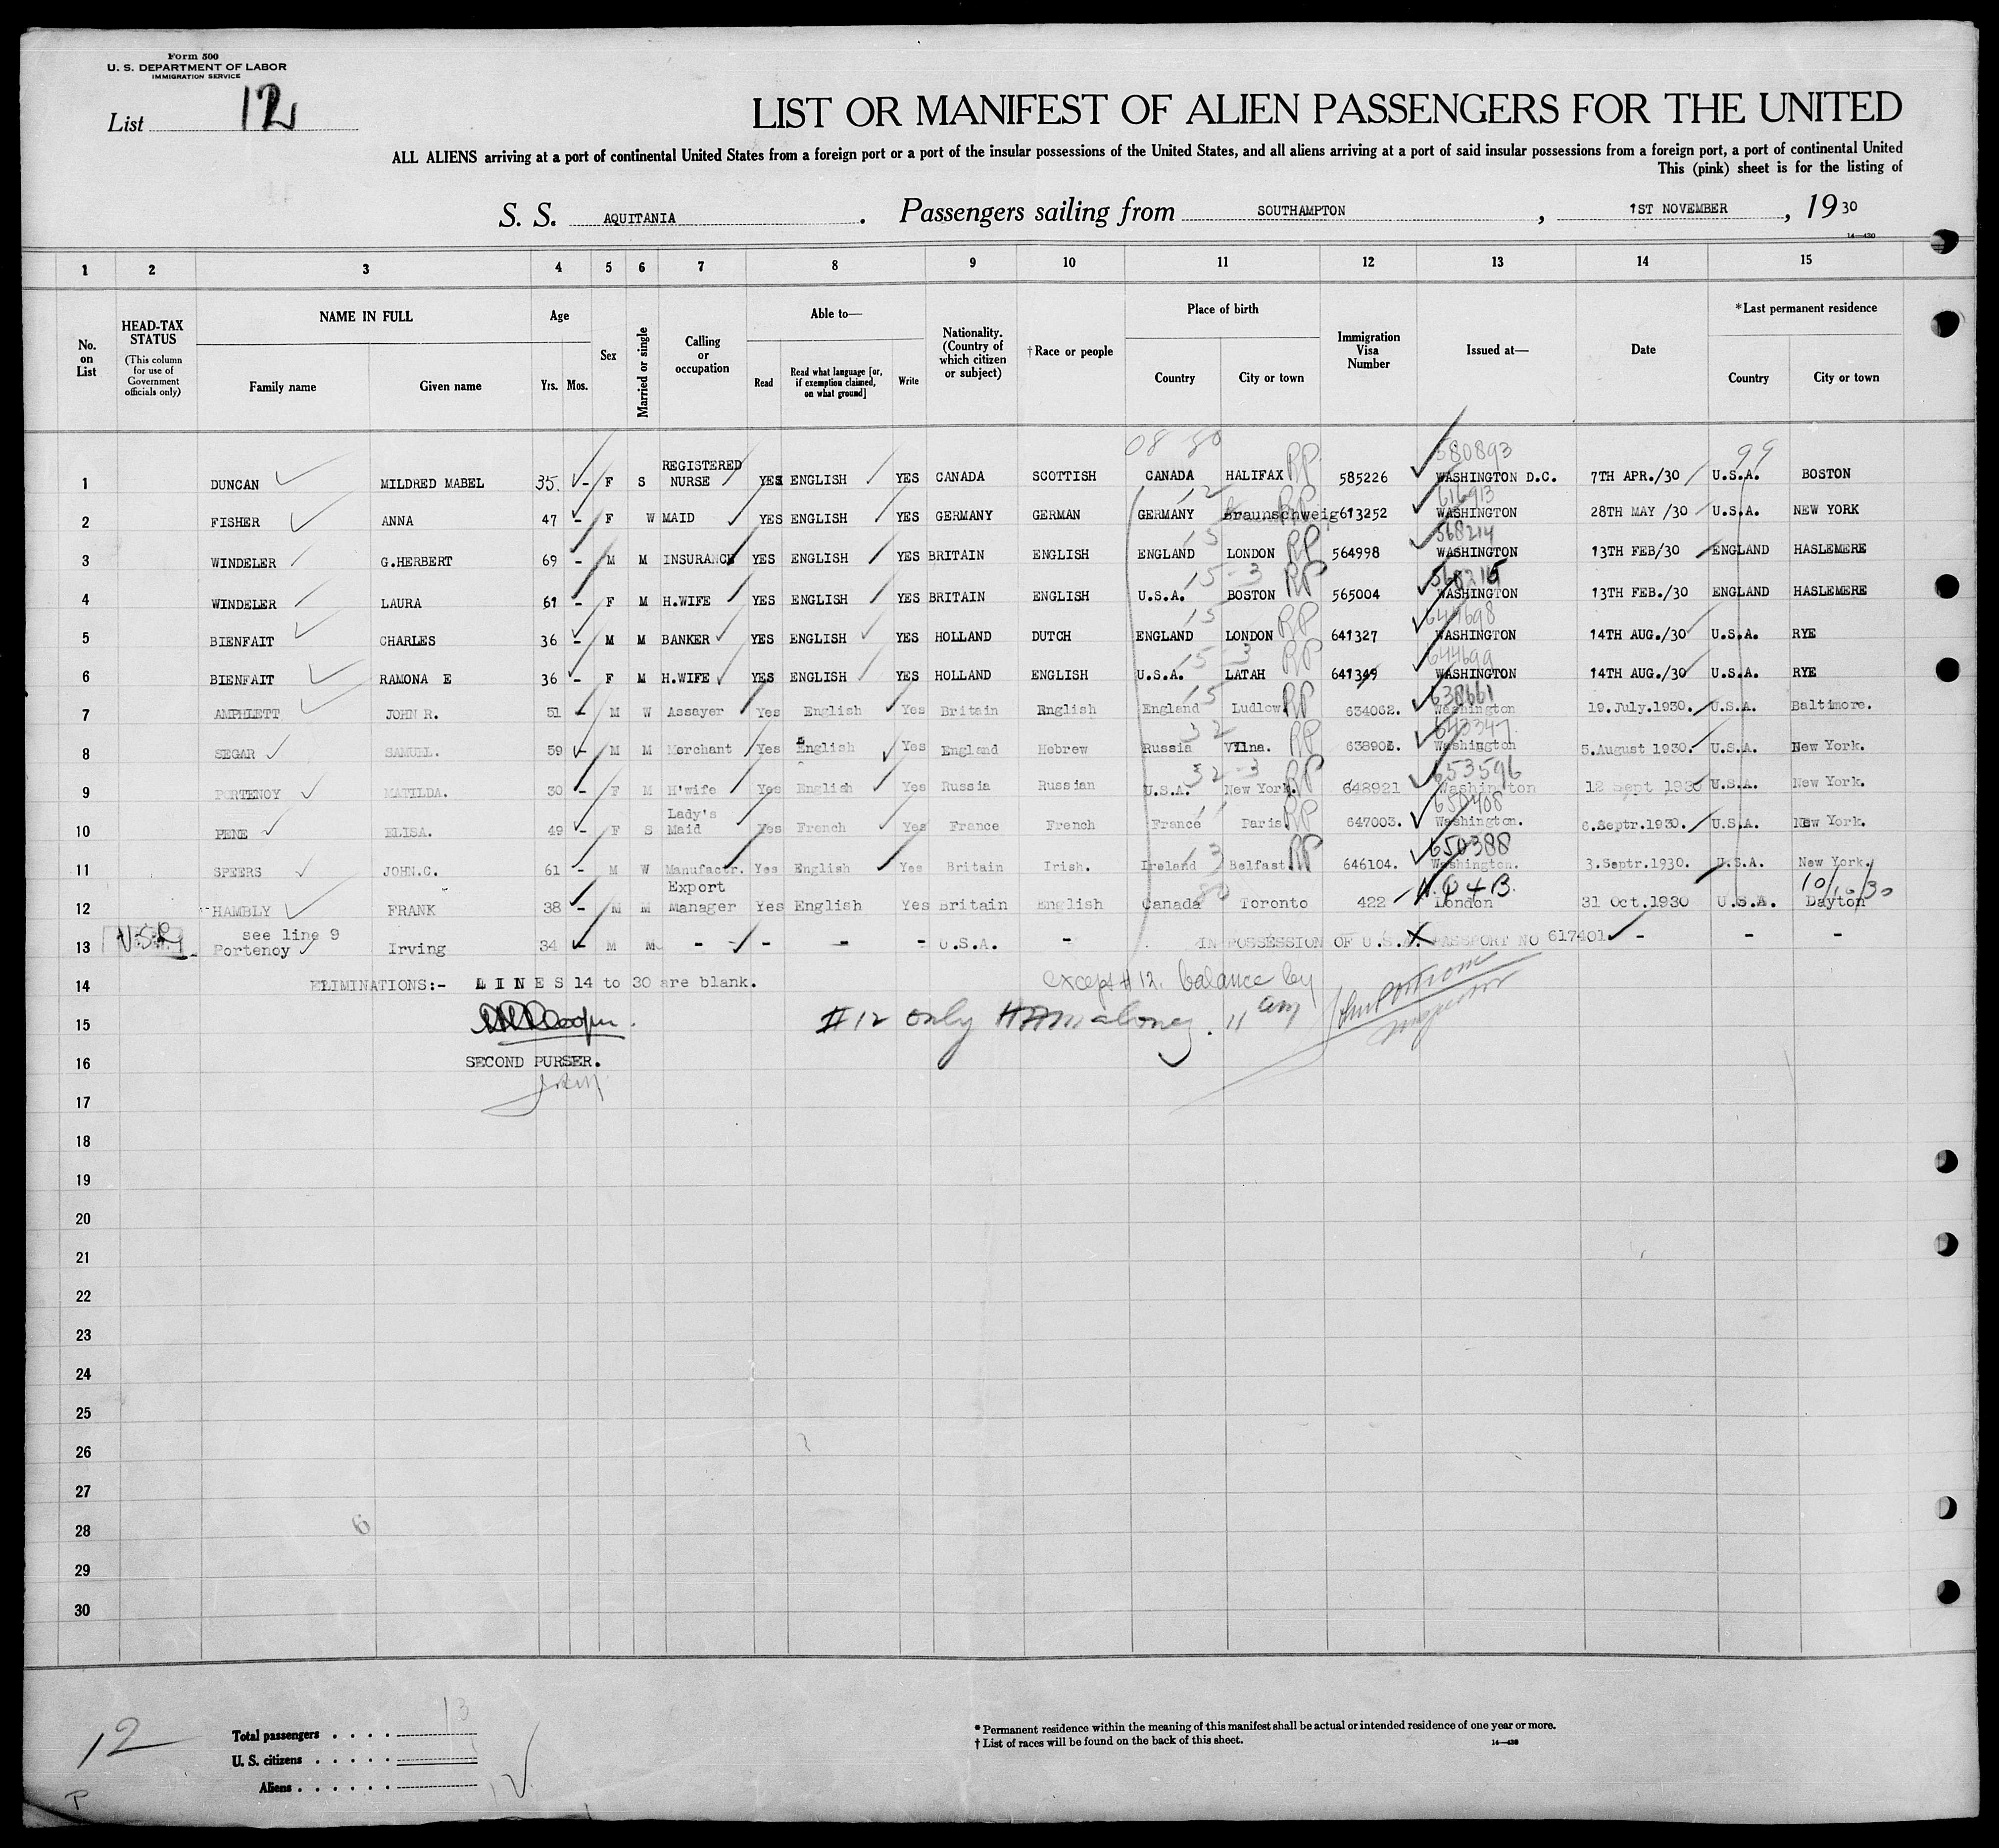 Form 500
U. S. DEPARTMENT OF LABOR
IMMIGRATION SERVICE
List 12
LIST OR MANIFEST OF ALIEN PASSENGERS FOR THE UNITED
ALL ALIENS arriving at a port of continental United States from a foreign port or a port of the insular possessions of the United States, and all aliens arriving at a port of said insular possessions from a foreign port, a port of continental United
This (pink) sheet is for the listing of
S. S. AQUITANIA . Passengers sailing from SOUTHAMPTON , 1ST NOVEMBER , 19 30
14—430
1 2 3 4 5 6 7 8 9 10 11 12 13 14 15
No. on List
HEAD-TAX STATUS
(This column for use of Government officials only)
NAME IN FULL
Family name Given name
Age
Yrs. Mos.
Sex
Married or single
Calling or occupation
Able to—
Read
Read what language [or, if exemption claimed, on what ground]
Write
Nationality. (Country of which citizen or subject)
†Race or people
Place of birth
Country City or town
Immigration Visa Number
Issued at—
Date
*Last permanent residence
Country City or town
08 80 580893 99
1 DUNCAN MILDRED MABEL 35 - F S REGISTERED NURSE YES ENGLISH YES CANADA SCOTTISH CANADA HALIFAX RP 585226 WASHINGTON D.C. 7TH APR./30 U.S.A. BOSTON
12 616913
2 FISHER ANNA 47 - F W MAID YES ENGLISH YES GERMANY GERMAN GERMANY Braunschweig RP 613252 WASHINGTON 28TH MAY /30 U.S.A. NEW YORK
15 568214
3 WINDELER G.HERBERT 69 - M M INSURANCE YES ENGLISH YES BRITAIN ENGLISH ENGLAND LONDON RP 564998 WASHINGTON 13TH FEB/30 ENGLAND HASLEMERE
15-3 568215
4 WINDELER LAURA 61 - F M H.WIFE YES ENGLISH YES BRITAIN ENGLISH U.S.A. BOSTON RP 565004 WASHINGTON 13TH FEB./30 ENGLAND HASLEMERE
15 644698
5 BIENFAIT CHARLES 36 - M M BANKER YES ENGLISH YES HOLLAND DUTCH ENGLAND LONDON RP 641327 WASHINGTON 14TH AUG./30 U.S.A. RYE
15-3 644699
6 BIENFAIT RAMONA E 36 - F M H.WIFE YES ENGLISH YES HOLLAND ENGLISH U.S.A. LATAH RP 641349 WASHINGTON 14TH AUG./30 U.S.A. RYE
15 638661
7 AMPHLETT JOHN R. 51 - M W Assayer Yes English Yes Britain English England Ludlow RP 634062. Washington 19.July.1930. U.S.A. Baltimore.
32 643347
8 SEGAR SAMUEL. 59 - M M Merchant Yes English Yes England Hebrew Russia Vilna. RP Washington 5.August 1930. U.S.A. New York.
32-3 653596
9 PORTENOY MATILDA. 30 - F M H'wife Yes English Yes Russia Russian U.S.A. New York. RP 648921 Washington 12 Sept 1930 U.S.A. New York.
11 650408
10 PENE ELISA. 49 - F S Lady's Maid Yes French Yes France French France Paris. RP 647003. Washington. 6.Septr.1930. U.S.A. New York.
13 650388
11 SPEERS JOHN.C. 61 - M W Manufactr. Yes English Yes Britain Irish. Ireland Belfast. RP 646104. Washington. 3.Septr.1930. U.S.A. New York.
80 10/10/30
12 HAMBLY FRANK 38 - M M Export Manager Yes English Yes Britain English Canada Toronto 422 London 31 Oct.1930 U.S.A. Dayton
see line 9
13 Portenoy Irving 34 - M M - - - - U.S.A. - IN POSSESSION OF U.S.A. PASSPORT NO 617401 - - -
14 ELIMINATIONS:- LINES 14 to 30 are blank. except #12. balance by
15 #12 only
Inspector
16 SECOND PURSER.
17
18
19
20
21
22
23
24
25
26
27
28
29
30
6
12
Total passengers . . . . . 13
U. S. citizens . . . . . 1
Aliens . . . . . . 12
P
* Permanent residence within the meaning of this manifest shall be actual or intended residence of one year or more.
† List of races will be found on the back of this sheet.
14—430